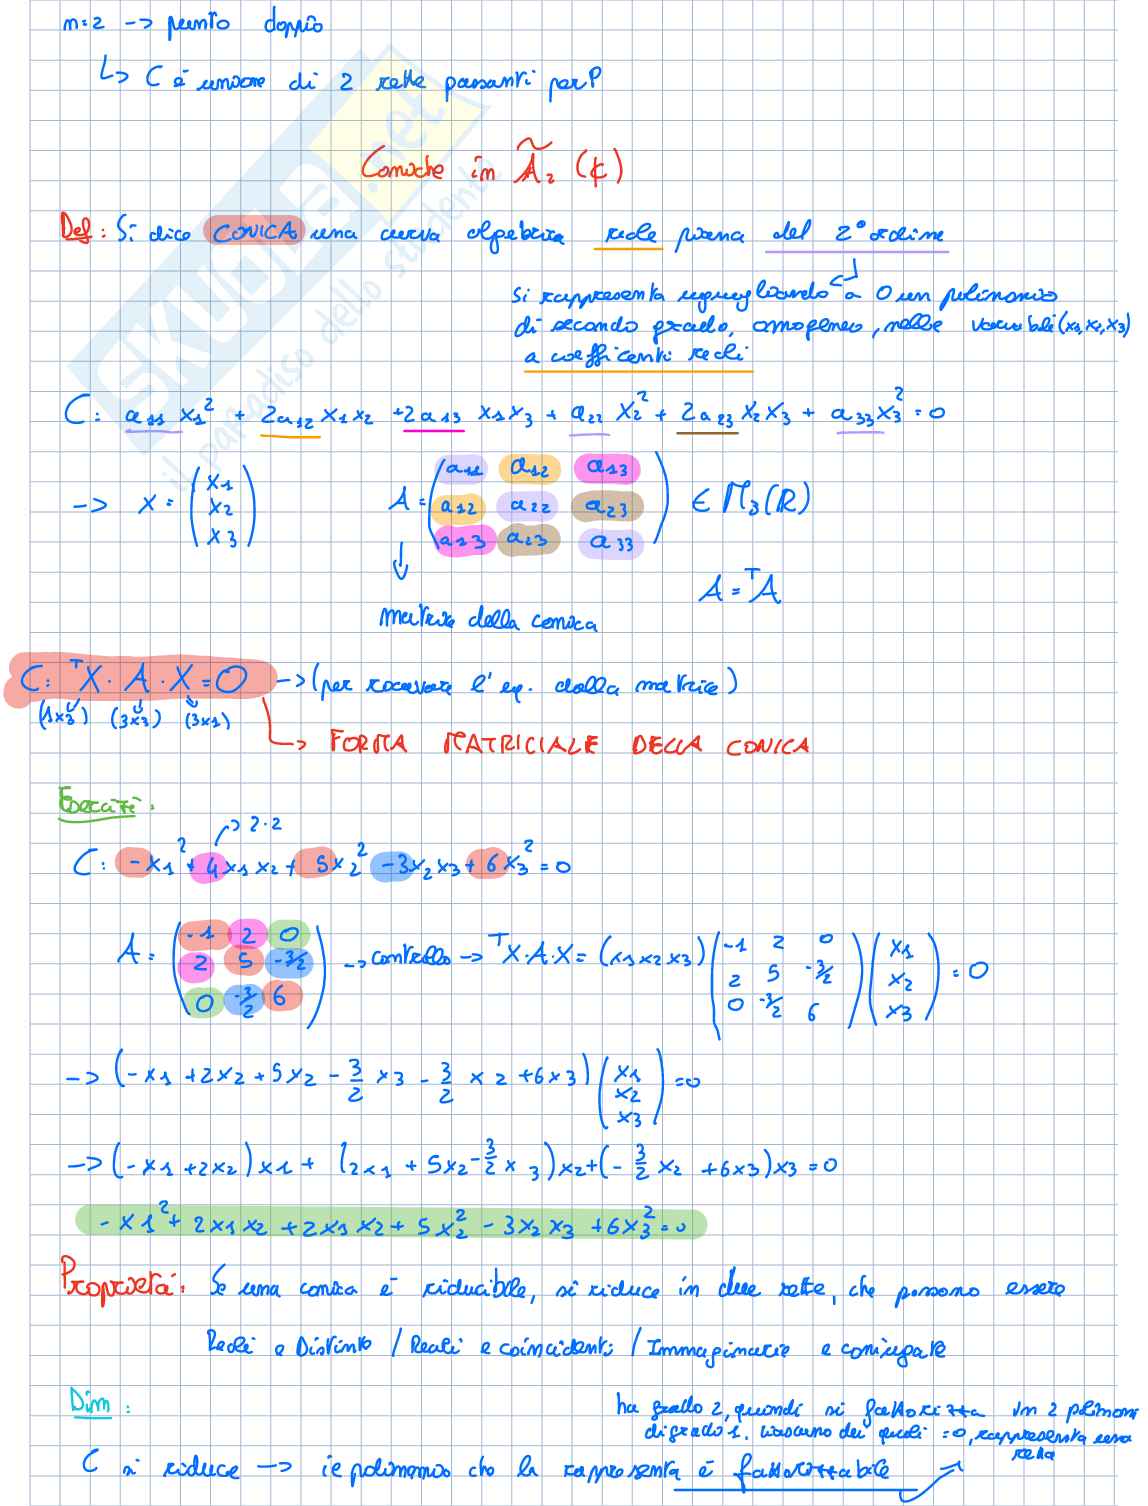 n=2 -> punto doppio
↳ C é unione di 2 rette passanti per P
Coniche in Ã₂ (ℂ)
Def: Si dice CONICA una curva algebrica reale piana del 2° ordine
si rappresenta uguagliando a 0 un polinomio
di secondo grado, omogeneo, nelle variabili (x₁,x₂,x₃)
a coefficienti reali
C: a₁₁ x₁² + 2a₁₂ x₁x₂ + 2a₁₃ x₁x₃ + a₂₂ x₂² + 2a₂₃ x₂x₃ + a₃₃x₃² = 0
-> X = (x₁ x₂ x₃)
A = (a₁₁ a₁₂ a₁₃
a₁₂ a₂₂ a₂₃
a₁₃ a₂₃ a₃₃) ∈ M₃(ℝ)
A = ᵀA
matrice della conica
C: ᵀX · A · X = 0 -> (per ricavare l'eq. dalla matrice)
(1x3) (3x3) (3x1)
↳ FORMA MATRICIALE DELLA CONICA
Esercizi:
-> 2·2
C: -x₁² + 4x₁x₂ + 5x₂² -3x₂x₃ + 6x₃² = 0
A = (-1 2 0
2 5 -3/2
0 -3/2 6) -> controllo -> ᵀX·A·X = (x₁ x₂ x₃) (-1 2 0
2 5 -3/2
0 -3/2 6) (x₁ x₂ x₃) = 0
-> (-x₁ + 2x₂ + 5x₂ - 3/2 x₃ - 3/2 x₂ + 6x₃) (x₁ x₂ x₃) = 0
-> (-x₁ + 2x₂)x₁ + (2x₁ + 5x₂ - 3/2 x₃)x₂ + (-3/2 x₂ + 6x₃)x₃ = 0
-x₁² + 2x₁x₂ + 2x₁x₂ + 5x₂² - 3x₂x₃ + 6x₃² = 0
Proprietá: Se una conica é riducibile, si riduce in due rette, che possono essere
Reali e Distinte / Reali e coincidenti / Immaginarie e coniugate
Dim:
ha grado 2, quindi si fattorizza in 2 polinomi
di grado 1. Ciascuno dei quali =0, rappresenta una
retta
C si riduce -> il polinomio che la rappresenta é fattorizzabile
SKUOLA.net
il paradiso dello studente